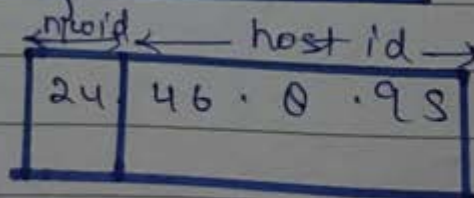 n/w id host id
24 46 . 0 . 95